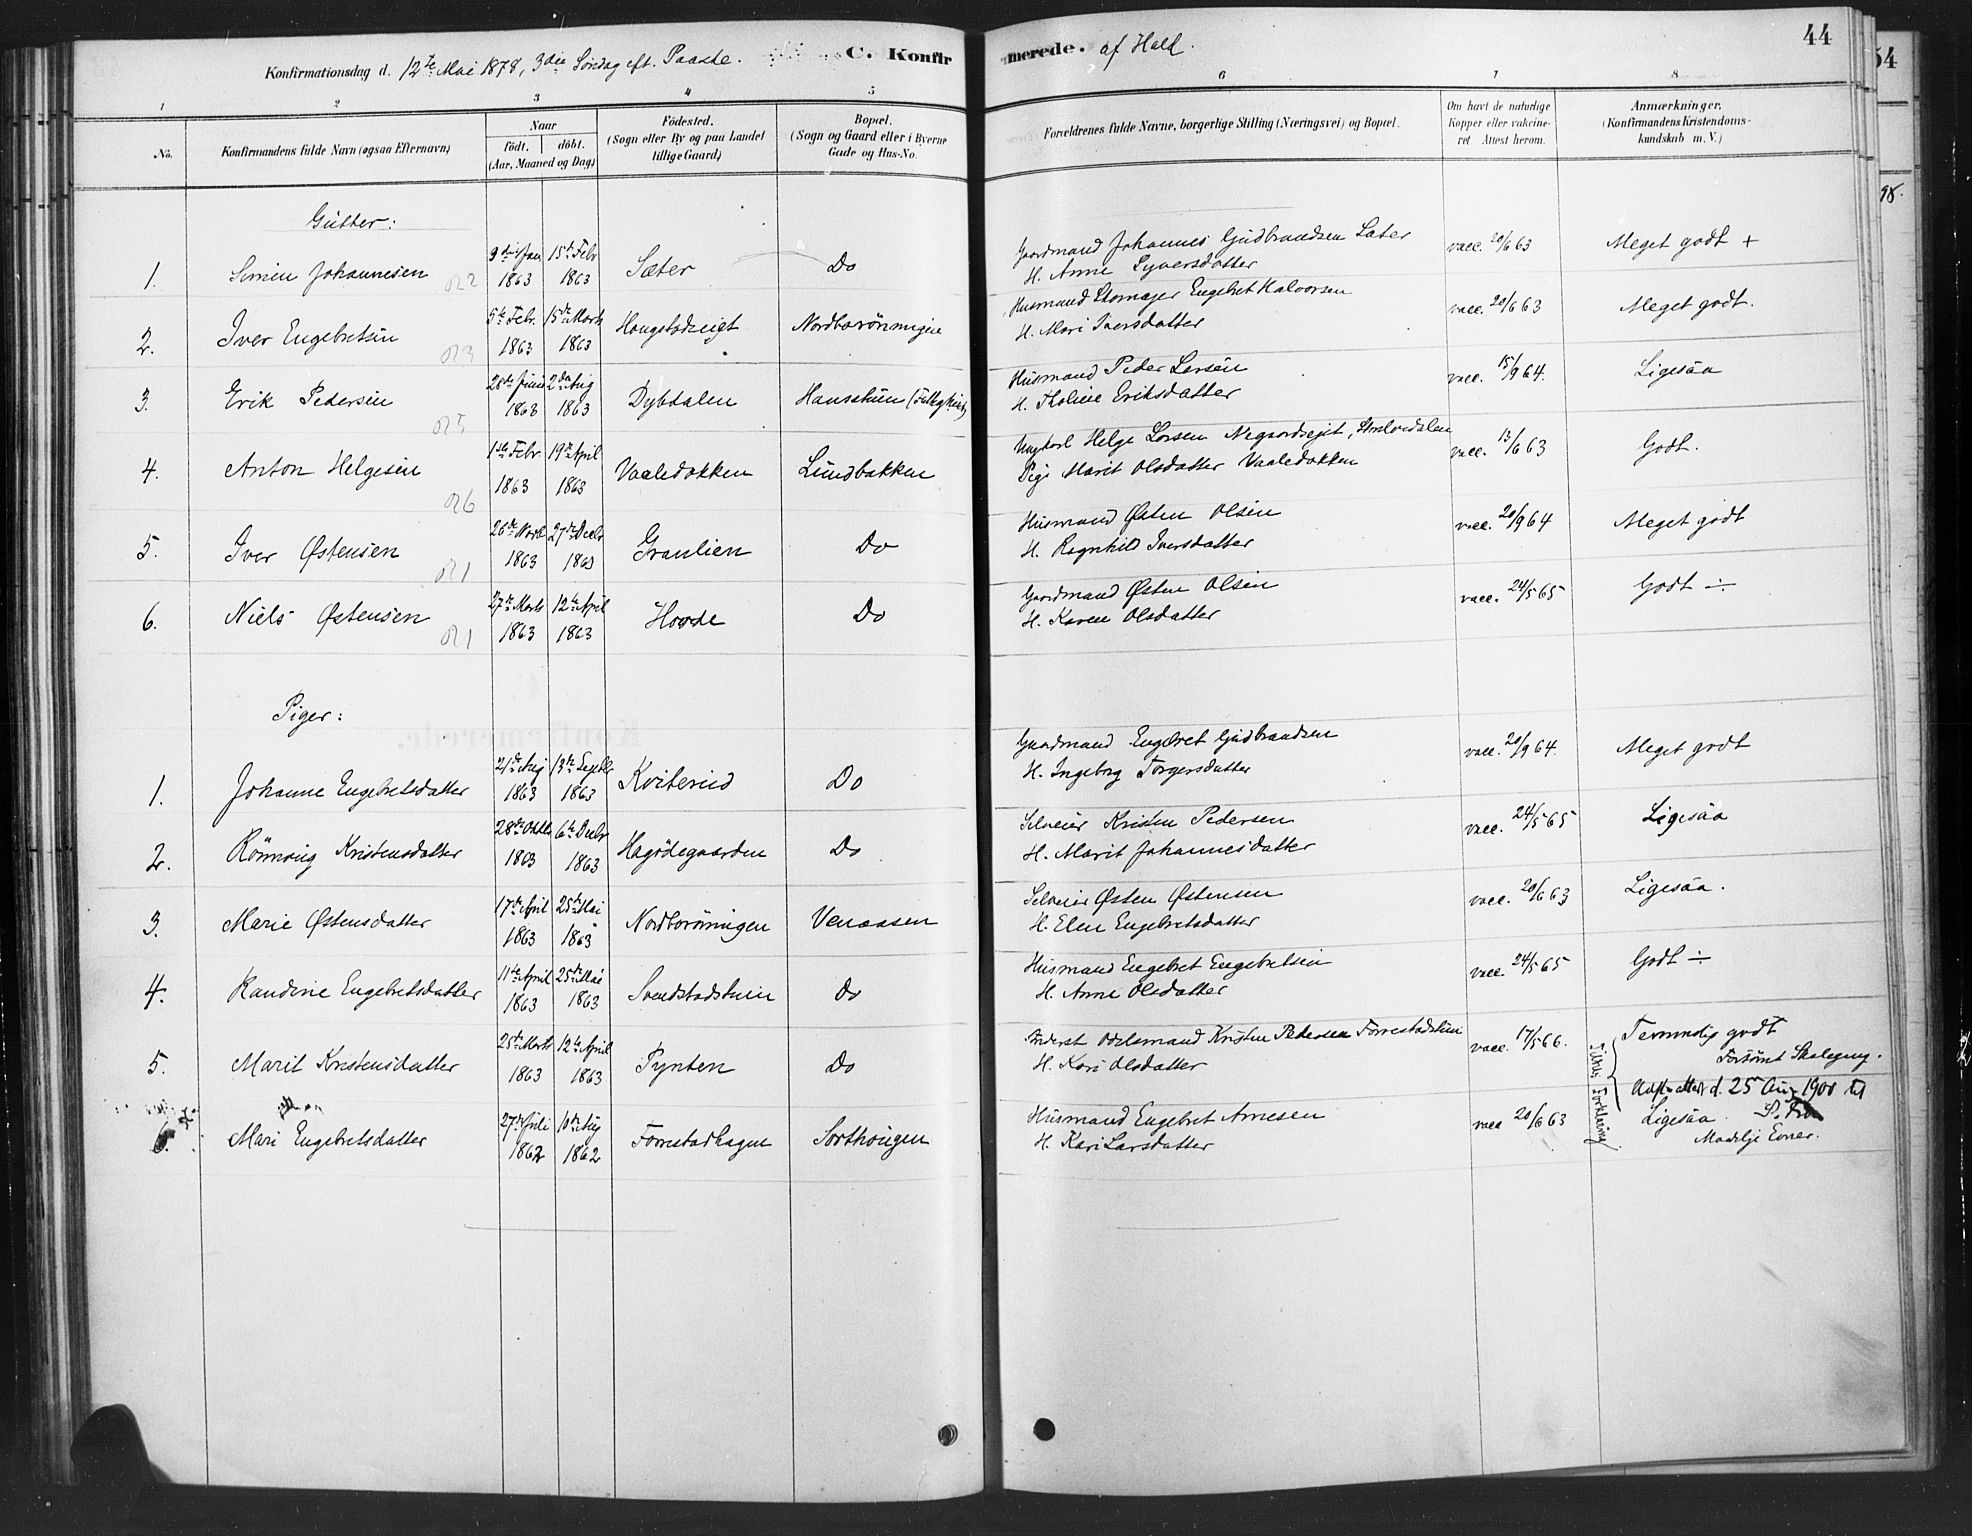 44
54
98.
Konfirmationsdag d. 12te Mai 1878, 3die Søndag eft. Paaske. C. Konfirmerede. af Hold.
1 2 3 4 5 6 7 8
No. Konfirmandens fulde Navn (ogsaa Efternavn) Naar født. døbt. (Aar, Maaned og Dag) Fødested. (Sogn eller By og paa Landet tillige Gaard) Bopæl. (Sogn og Gaard eller i Byerne Gade og Hus-No. Forældrenes fulde Navne, borgerlige Stilling (Næringsvei) og Bopæl. Om havt de naturlige Kopper eller vakcineret Attest herom. Anmærkninger. (Konfirmandens Kristendomskundskab m. V.)
Gutter:
1. Simen Johannesen 9de Jan 1863 15de Febr 1863 Sæter Do Gaardmand Johannes Gudbrandsen Sæter H. Anne Syversdatter vacc. 20/6 63 Meget godt +
2. Iver Engebretsen 5te Febr. 1863 15de Marts 1863 Nordbarønningen Husmand Engebret Halvorsen H. Mari Iversdatter vacc. 20/6 63 Meget godt.
3. Erik Pedersen 28de Juni 1863 2den Aug 1863 Dybdalen Husmand Peder Larsen H. Eriksdatter vacc. 15/9 64. Ligesaa
4. Anton Helgesen 1ste Febr 1863 19de April 1863 Vaaledokken Lundbakken Ungkarl Helge Larsen Pige Marit Olsdatter Vaaledokken vacc. 13/6 63 Godt.
5. Iver Østensen 26de Novb 1863 27de Decbr 1863 Granlien Do Husmand Østen Olsen H. Ragnhild Iversdatter vacc. 20/9 64 Meget godt
6. Niels Østensen 27de Marts 1863 12te April 1863 Hovde Do Gaardmand Østen Olsen H. Karen Olsdatter vacc. 24/5 65 Godt ÷
Piger:
1. Johanne Engebretsdatter 21de Aug 1863 13de Septbr 1863 Kviterud Do Gaardmand Engebret Gudbrandsen H. Ingeborg Torgersdatter vacc. 20/9 64. Meget godt
2. Rønnaug Kristensdatter 28de Oktbr 1863 6te Decbr 1863 Hagødegaarden Do Selveier Kristen Pedersen H. Marit Johannesdatter vacc. 24/5 65 Ligesaa
3. Marie Østensdatter 17de April 1863 25de Mai 1863 Nordbarønningen Venaasen Selveier Østen Østensen H. Elen Engebretsdatter vacc. 20/6 63 Ligesaa.
4. Randine Engebretsdatter 11te April 1863 25de Mai 1863 Svendstadstuen Do Husmand Engebret Engebretsen H. Anne Olsdatter vacc. 24/5 65 Godt ÷
5. Marit Kristensdatter 25de Marts 1863 12te April 1863 Pynten Do Inderst Kristen Pedersen Forrestadstuen H. Kari Olsdatter vacc. 17/5 66. Temmelig godt Forsømt Skolegang.
6. Mari Engebretsdatter 27de Juli 1862 10de Aug 1862 Forrestadhagen Sorthougen Husmand Engebret Arnesen H. Kari Larsdatter vacc 20/6 63 Ligesaa
d. 25 Aug 1900 til
Forklaring